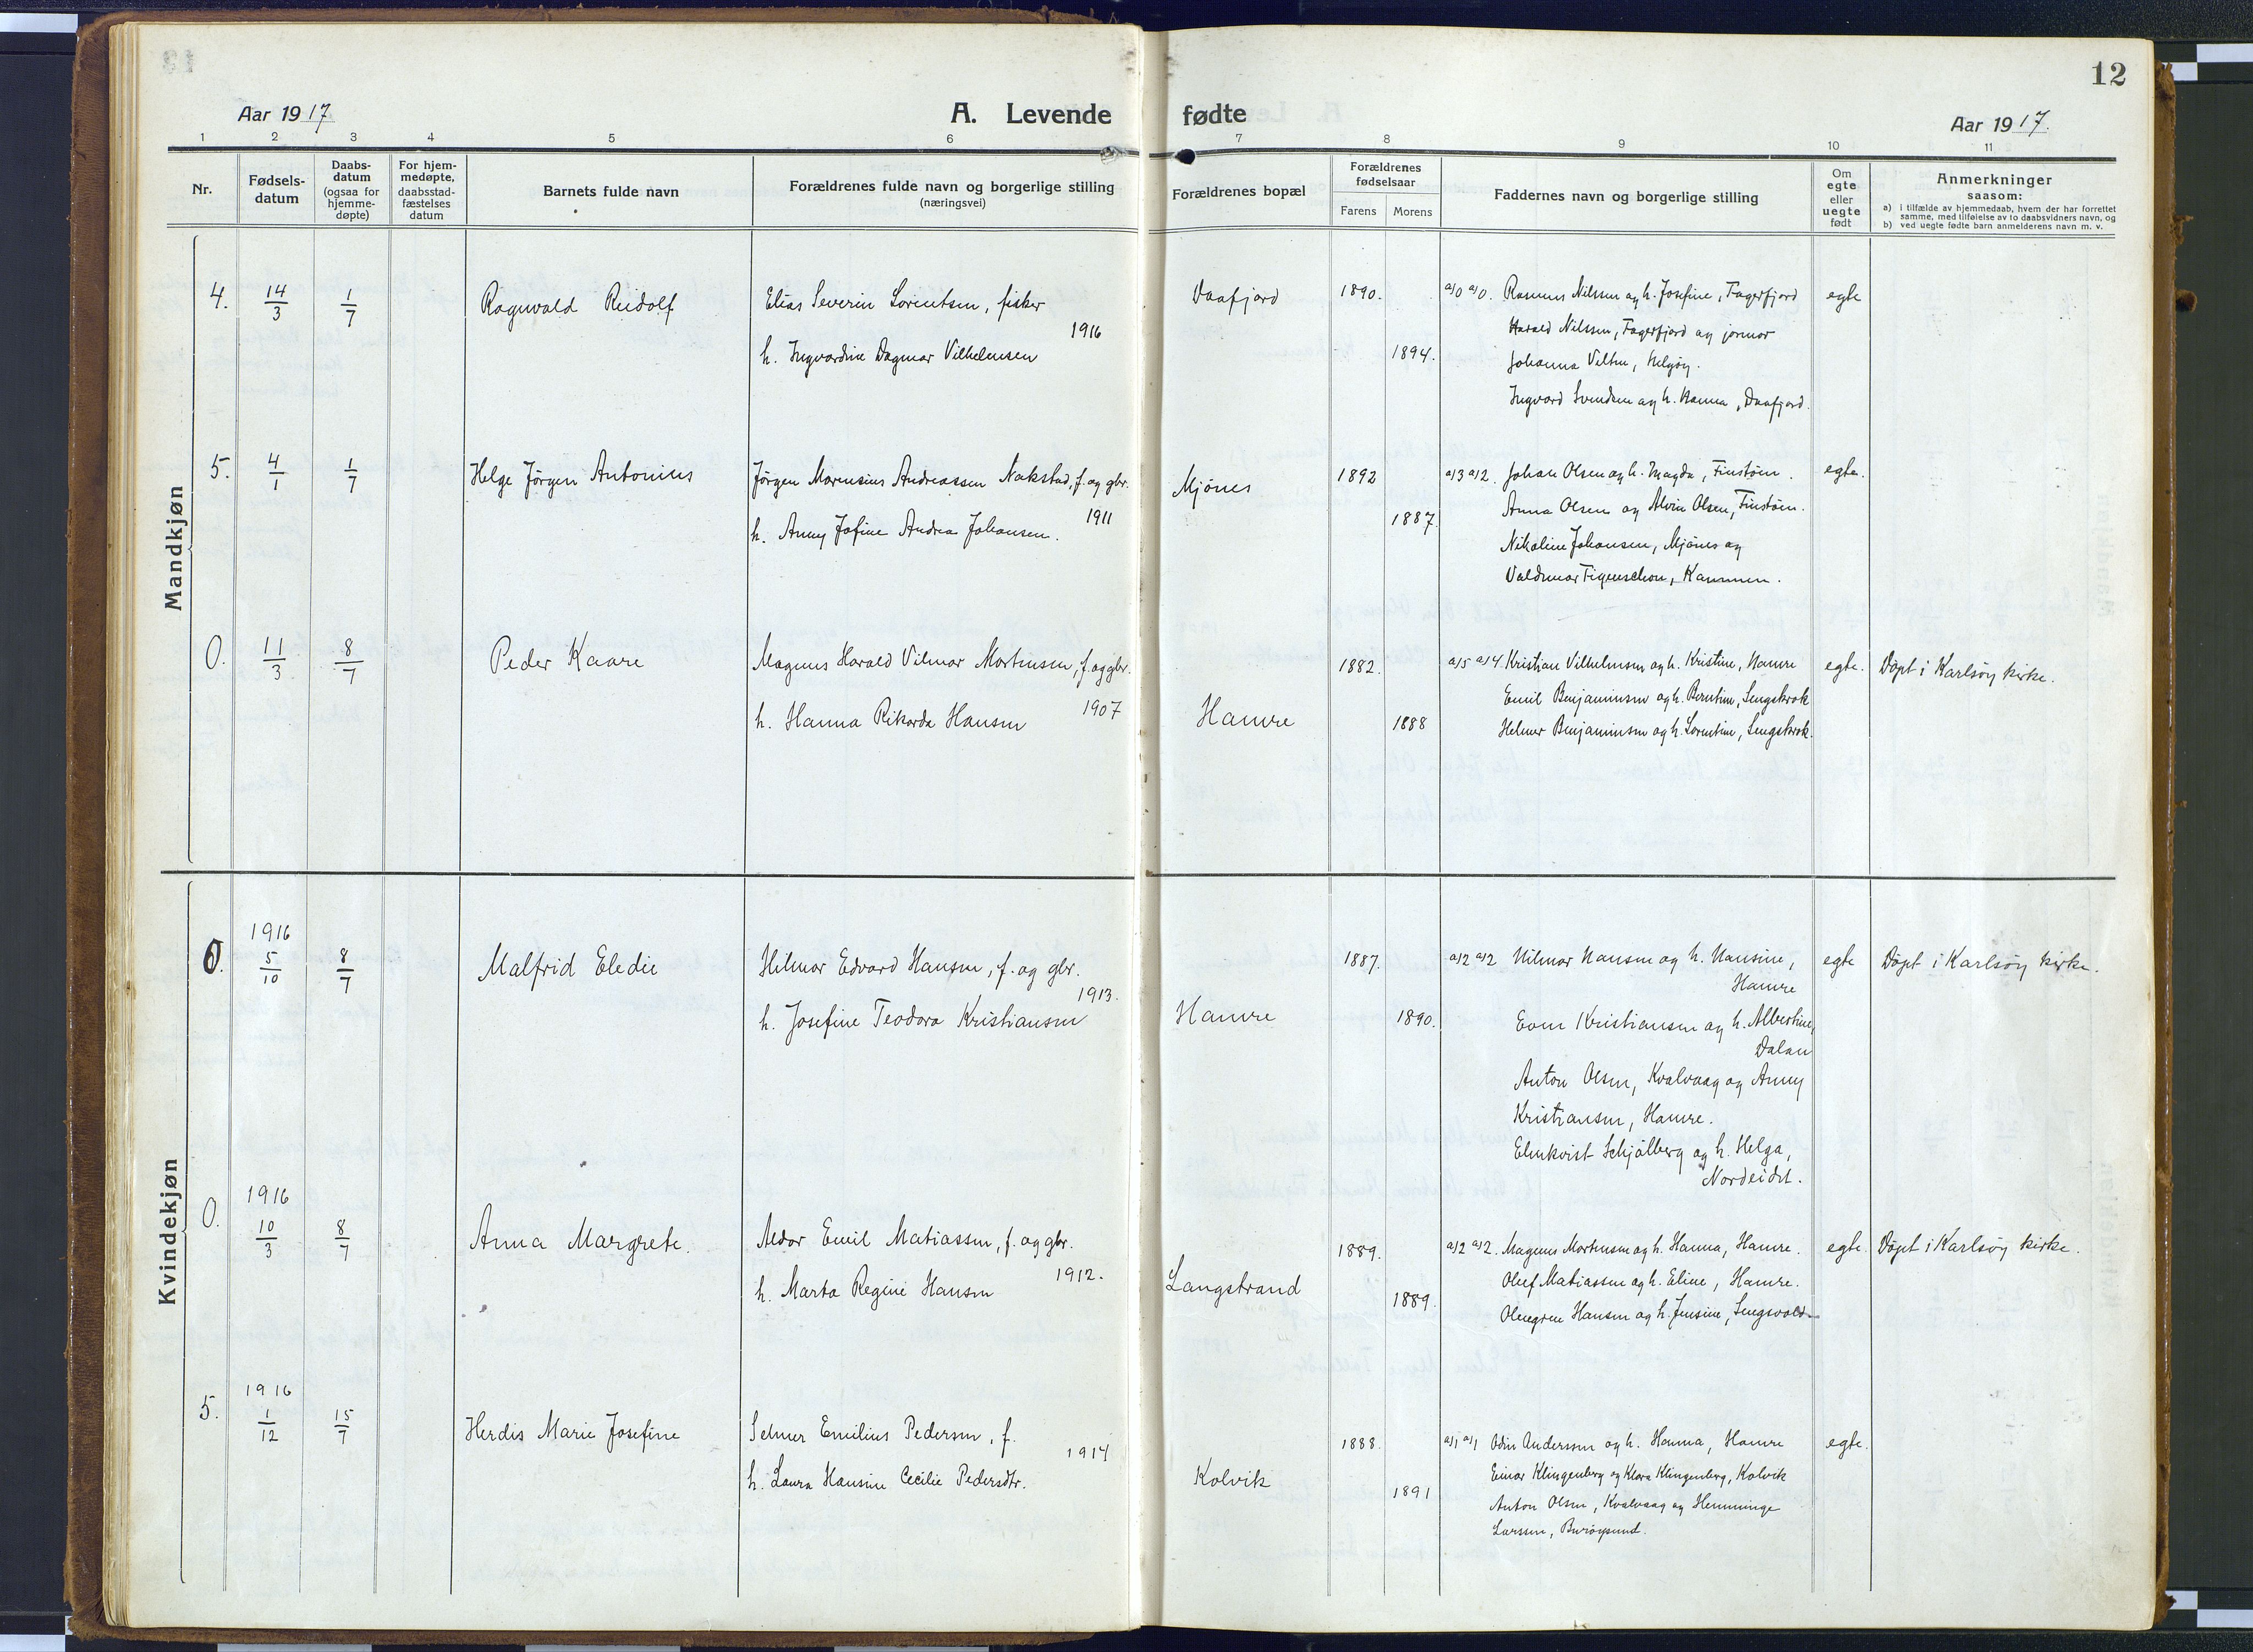 12
Aar 1917
A. Levende fødte
Aar 1917.
1 2 3 4 5 6 7 8 9 10 11
Nr.
Fødsels-
datum
Daabs-
datum
(ogsaa for
hjemme-
døpte)
For hjem-
medøpte,
daabsstad-
fæstelses
datum
Barnets fulde navn
Forældrenes fulde navn og borgerlige stilling
(næringsvei)
Forældrenes bopæl
Forældrenes
fødselsaar
Farens Morens
Faddernes navn og borgerlige stilling
Om
egte
eller
uegte
født
Anmerkninger
saasom:
a) i tilfælde av hjemmedaab, hvem der har forrettet
samme, med tilføielse av to daabsvidners navn, og
b) ved uegte fødte barn anmelderens navn m. v.
Mandkjøn
4. 14/3 1/7 Ragnvald Reidolf
Elias Severin Lorentsen, fisker
1916
h. Ingvardine Dagmar Vilhelmsen
Daafjord
1890.
1894.
a/0 a/0. Rasmus Nilssen og h. Josefine, Fagerfjord
Harald Nilssen, Fagerfjord og jormor
Johanna Velten, Helgøy.
Ingvard Svendsen og h. Hanna, Daafjord.
egte
5. 4/1 1/7 Helge Jörgen Antonius
Jörgen Marensius Andreassen Nakstad, f. og gbr.
1911
h. Anny Jofine Andrea Johansen.
Mjönes
1892
1887.
a/3 a/2. Johan Olsen og h. Magda, Finstöin.
Anna Olsen og Alvin Olsen, Finstöin.
Nikoline Johansen, Mjönes og
Valdemar Figenschou, Kammen.
egte.
0. 11/3 8/7 Peder Kaare
Magnus Harald Vilmar Mortensen, f. og gbr.
1907
h. Hanna Rikarda Hansen
Hamre
1882.
1888
a/5 a/4. Kristian Vilhelmsen og h. Kristine, Hamre
Emil Benjaminsen og h. Berntine, Lengskrok
Helmer Benjaminsen og h. Lorentine, Lengskrok.
egte.
Döpt i Karlsöy kirke.
Kvindekjøn
0. 1916 5/10 8/7 Malfrid Eledie
Hilmar Edvard Hansen, f. og gbr.
1913.
h. Josefine Teodora Kristiansen
Hamre
1887.
1890.
a/2 a/2 Hilmar Hansen og h. Hansine,
Hamre
Even Kristiansen og h. Albertine,
Dalan
Anton Olsen, Kvalvaag og Anny
Kristiansen, Hamre.
Elmkvist Schjölberg og h. Helga,
Nordeidet.
egte
Döpt i Karlsöy kirke.
0. 1916 10/3 8/7 Anna Margrete.
Aldor Emil Matiassen, f. og gbr.
1912.
h. Marta Regine Hansen
Langstrand
1889.
1889.
a/2 a/2. Magnus Mortensen og h. Hanna, Hamre.
Oluf Matiassen og h. Eline, Hamre.
Hansen og h. Jensine, Lengsvold
egte.
Döpt i Karlsöy kirke.
5. 1916 1/12 15/7 Herdis Marie Josefine
Selmer Emilius Pedersen, f.
1914
h. Laura Hansine Cecilie Pedersdtr.
Kolvik
1888.
1891
a/1 a/1 Odin Anderssen og h. Hanna, Hamre
Einar Klingenberg og Klara Klingenberg, Kolvik
Anton Olsen, Kvalvaag og Hemminge
Larssen, Buröysund.
egte.